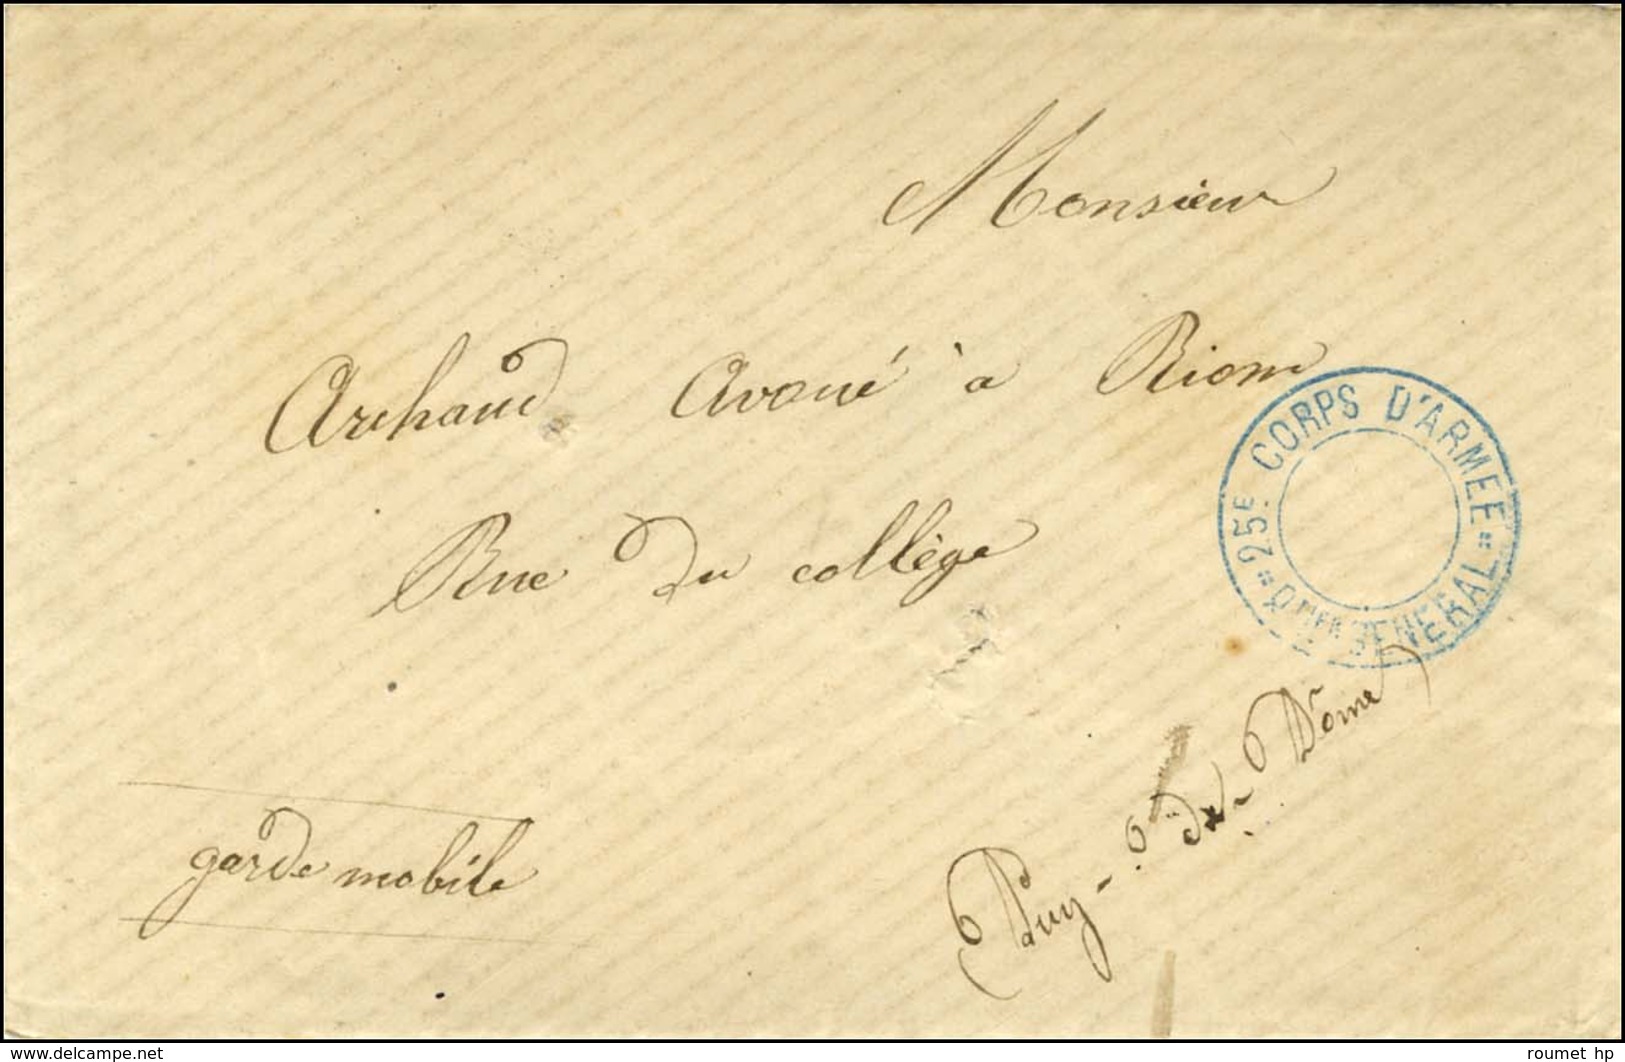 Monsieur
Archaud Avoué à Riom
Rue du collège
25E CORPS D'ARMEE
QTIER GENERAL
(Puy-de-Dôme)
garde mobile
www.delcampe.net
roumet hp